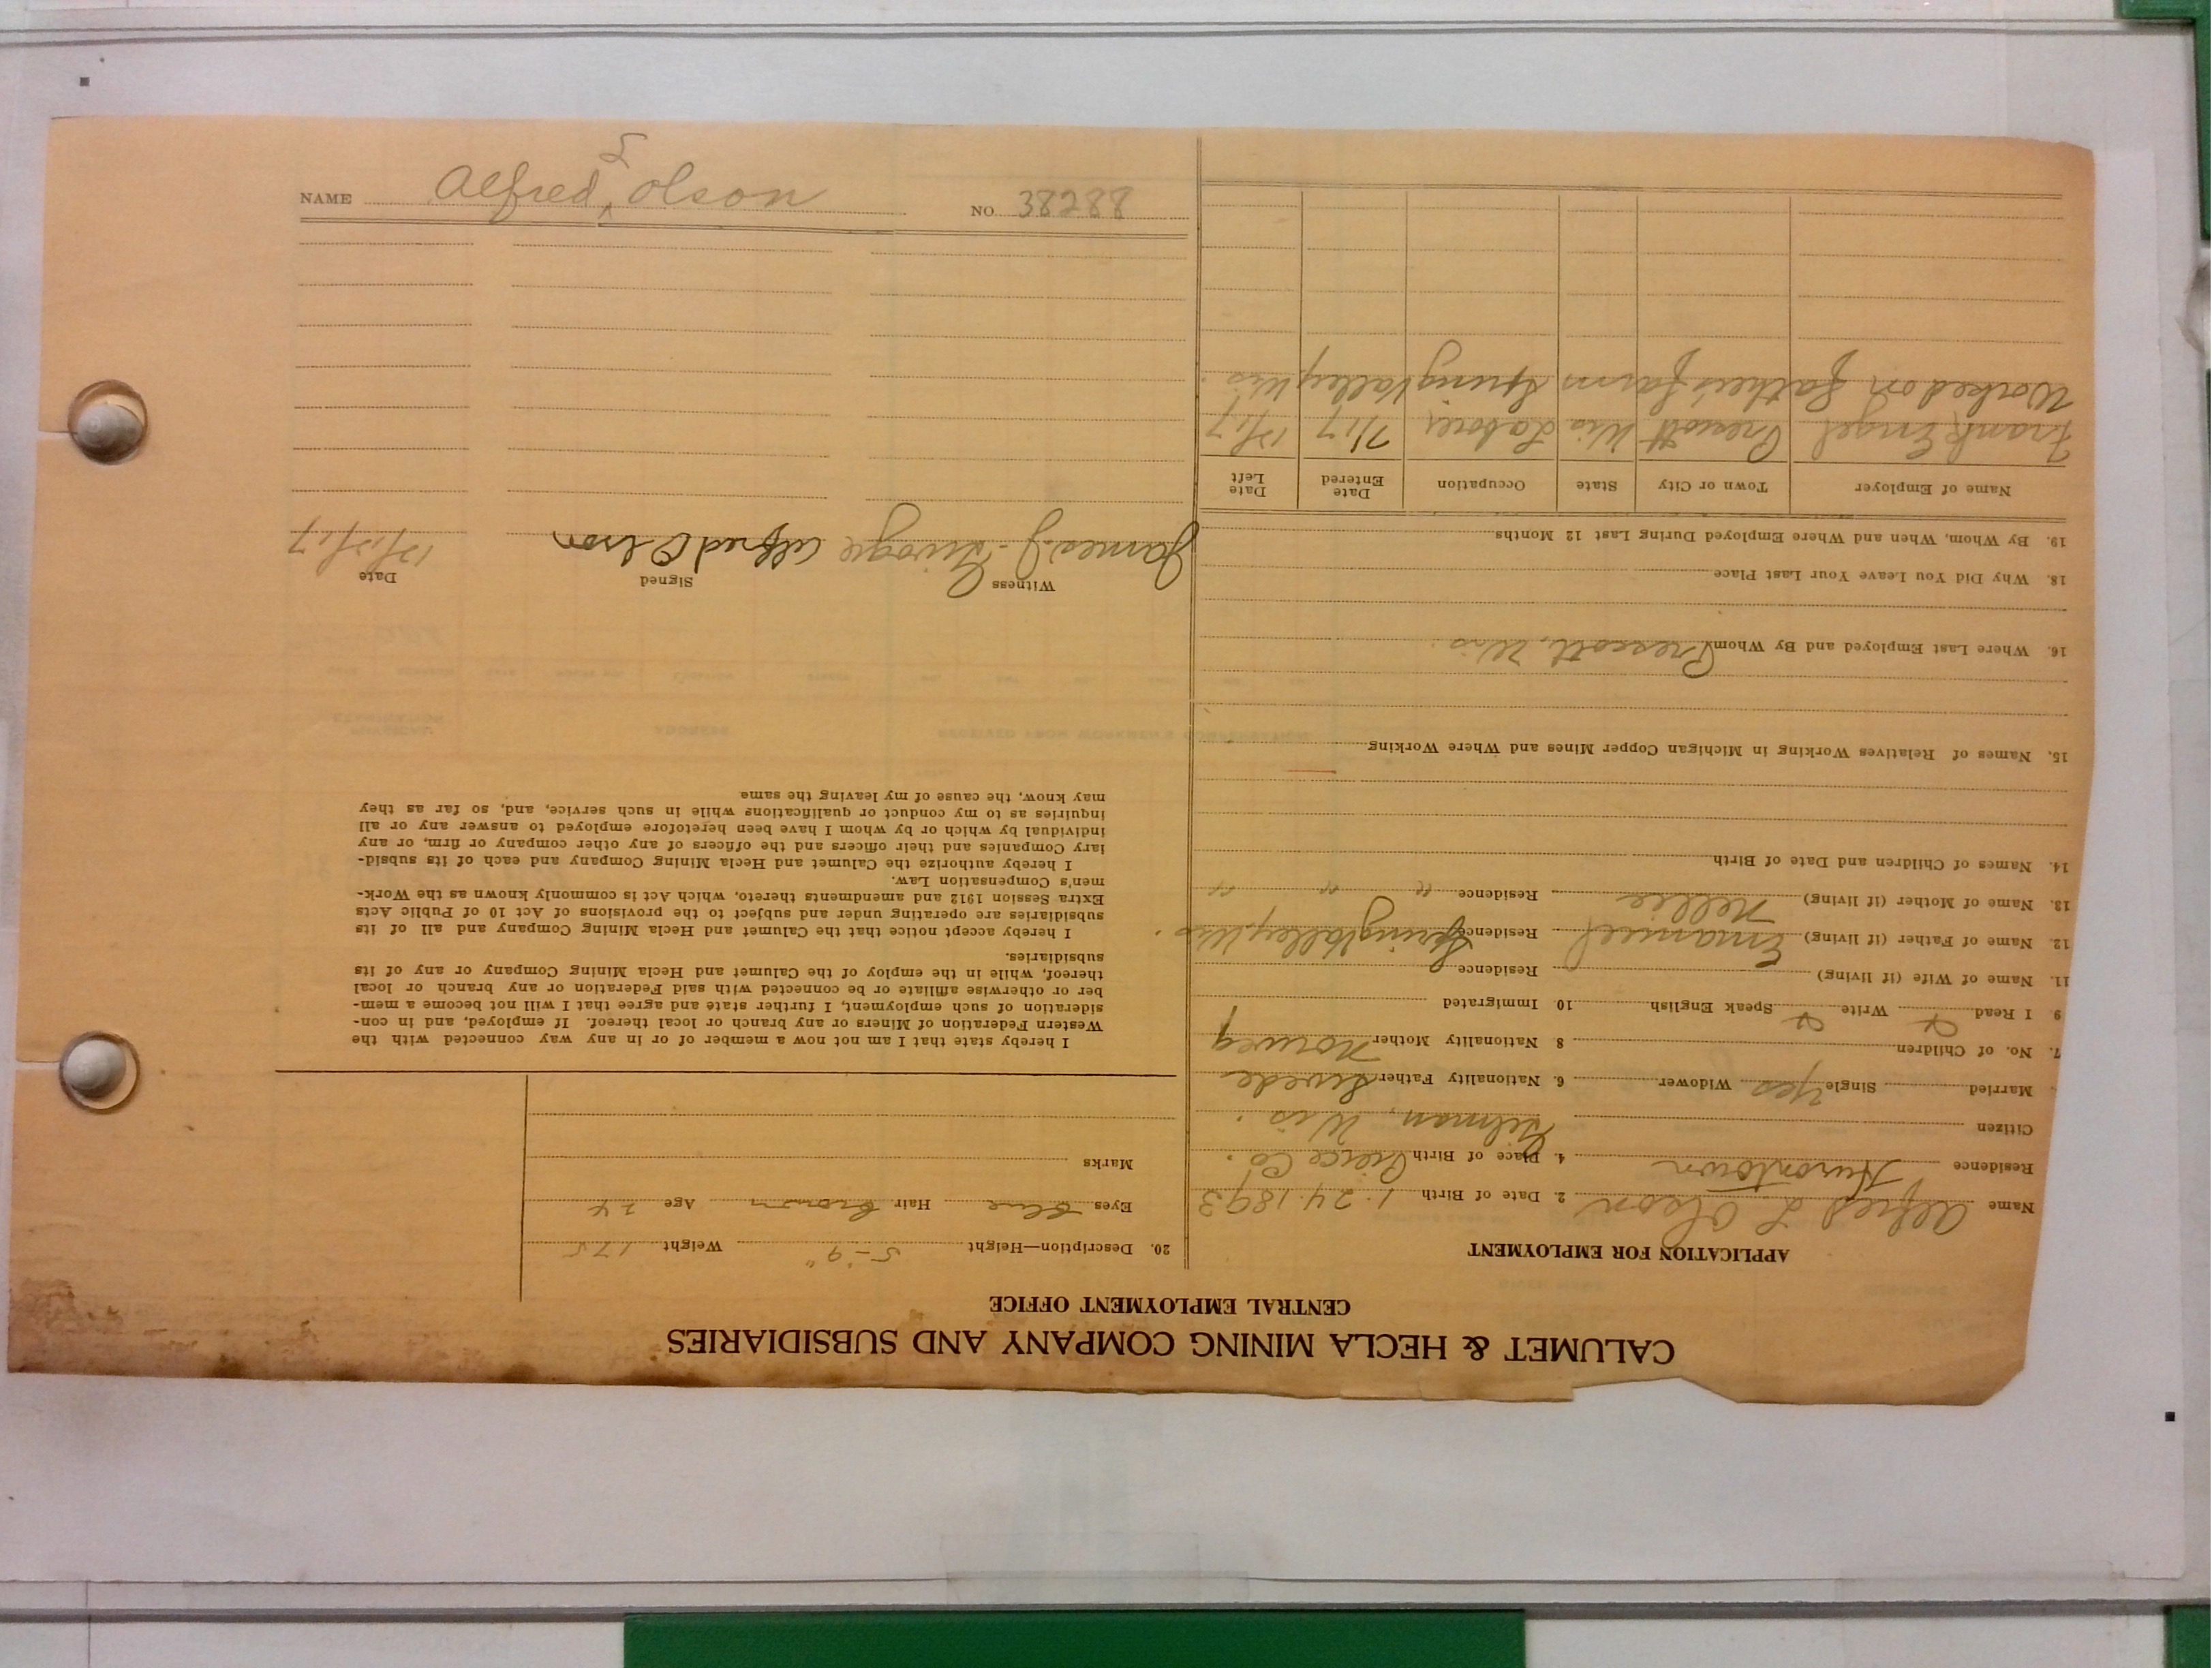 CALUMET & HECLA MINING COMPANY AND SUBSIDIARIES
CENTRAL EMPLOYMENT OFFICE
APPLICATION FOR EMPLOYMENT
Name Alfred L Olson 2. Date of Birth 1-24-1893
Residence Hurontown 4. Place of Birth Pierce Co.
Citizen Gilman, Wis.
Married Single Yes Widower 6. Nationality Father Swede
7. No. of Children 8. Nationality Mother Norweg
9 I Read Write Speak English 10. Immigrated
11. Name of Wife (if living) Residence
12. Name of Father (if living) Emanuel Residence Spring Valley, Wis.
13. Name of Mother (if living) Nellie Residence " " "
14. Names of Children and Date of Birth
15. Names of Relatives Working in Michigan Copper Mines and Where Working
16. Where Last Employed and By Whom Prescott, Wis.
18. Why Did You Leave Your Last Place
19. By Whom, When and Where Employed During Last 12 Months
Name of Employer Town or City State Occupation Date Entered Date Left
Frank Engel Prescott Wis Laborer 7/17 12/17
Worked on fathers farm Spring Valley, Wis.
20. Description—Height 5-9" Weight 175
Eyes blue Hair brown Age 24
Marks
I hereby state that I am not now a member of or in any way connected with the
Western Federation of Miners or any branch or local thereof. If employed, and in con-
sideration of such employment, I further state and agree that I will not become a mem-
ber or otherwise affiliate or be connected with said Federation or any branch or local
thereof, while in the employ of the Calumet and Hecla Mining Company or any of its
subsidiaries.
I hereby accept notice that the Calumet and Hecla Mining Company and all of its
subsidiaries are operating under and subject to the provisions of Act 10 of Public Acts
Extra Session 1912 and amendments thereto, which Act is commonly known as the Work-
men's Compensation Law.
I hereby authorize the Calumet and Hecla Mining Company and each of its subsid-
iary Companies and their officers and the officers of any other company or firm, or any
individual by which or by whom I have been heretofore employed to answer any or all
inquiries as to my conduct or qualifications while in such service, and, so far as they
may know, the cause of my leaving the same
Witness Signed Date
James J. Alfred Olson 12/12/17
NAME Alfred L Olson NO. 38288